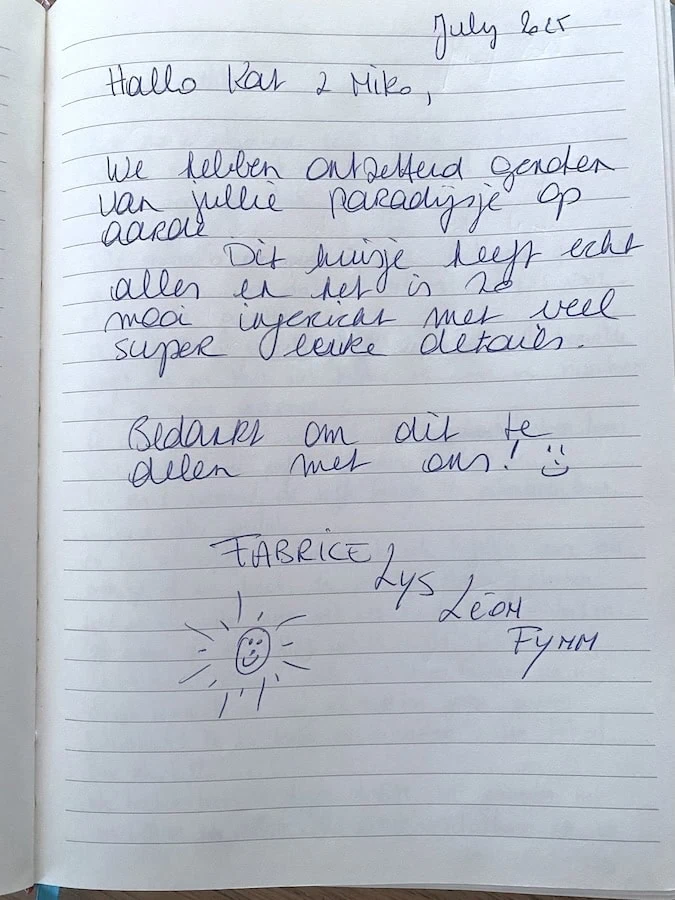 July 2025
Hallo Kat & Miko,
We hebben ontzettend genoten
van jullie paradijsje op
aarde
Dit huisje heeft echt
alles en het is zo
mooi ingericht met veel
super leuke details.
Bedankt om dit te
delen met ons! :)
FABRICE
Lys
Léon
Fynn